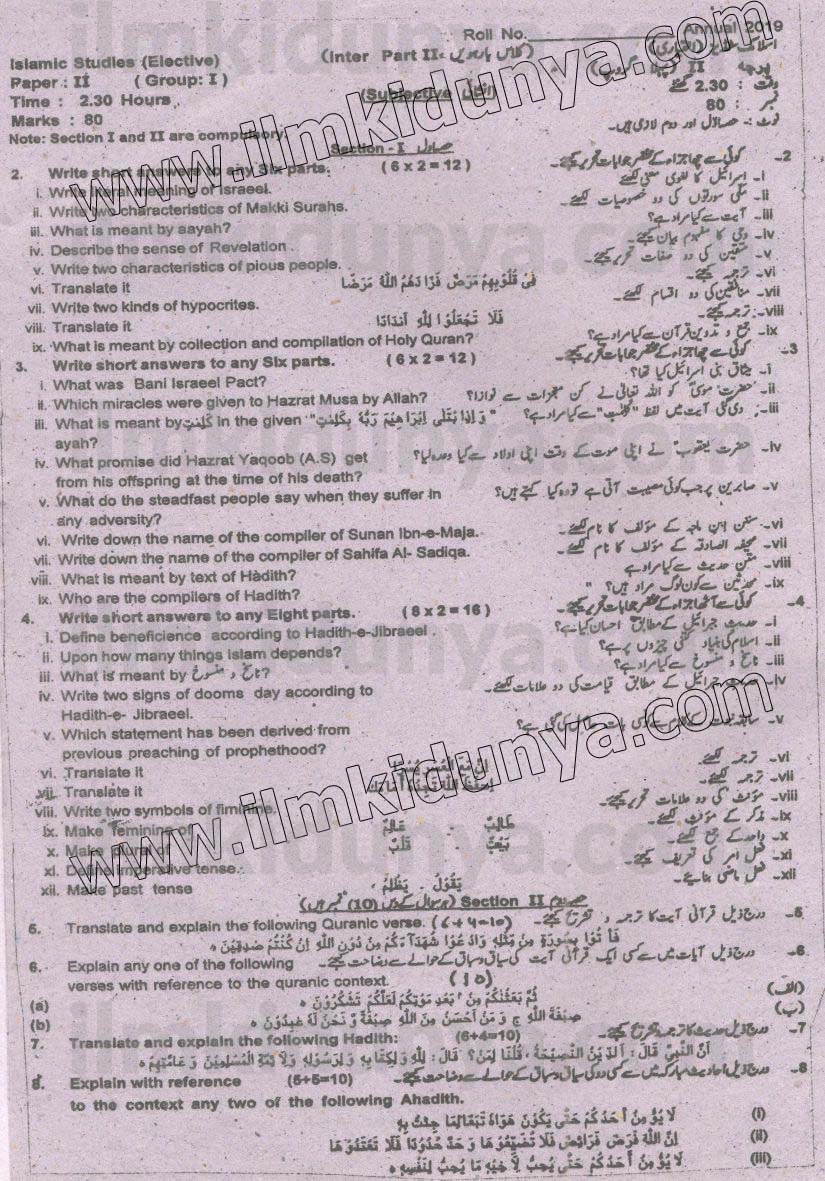 Roll No.____________ Annual 2019
Islamic Studies (Elective) (Inter Part II، کلاس بارھویں)
Paper : II ( Group: I ) پرچہ II
Time : 2.30 Hours (Subjective) وقت : 2.30 گھنٹے
Marks : 80 نمبر : 80
Note: Section I and II are compulsory. نوٹ :۔ حصہ اول اور دوم لازمی ہیں۔
Section - I حصہ اول
2. Write short answers to any Six parts. ( 6 x 2 = 12 ) کوئی سے چھ اجزاء کے مختصر جوابات تحریر کیجئے۔ -2
i. Write literal meaning of Israeel. i۔ اسرائیل کا لغوی معنی لکھئے
ii. Write two characteristics of Makki Surahs. ii۔ مکی سورتوں کی دو خصوصیات لکھئے۔
iii. What is meant by aayah? iii۔ آیت سے کیا مراد ہے؟
iv. Describe the sense of Revelation . iv۔ وحی کا مفہوم بیان کیجئے۔
v. Write two characteristics of pious people. v۔ متقین کی دو صفات تحریر کیجئے۔
vi. Translate it فِىْ قُلُوْبِهِمْ مَرَضٌ فَزَادَهُمُ اللّٰهُ مَرَضًا vi۔ ترجمہ کیجئے۔
vii. Write two kinds of hypocrites. vii۔ منافقین کی دو اقسام لکھئے۔
viii. Translate it فَلَا تَجْعَلُوْا لِلّٰهِ اَنْدَادًا viii۔ ترجمہ کیجئے۔
ix. What is meant by collection and compilation of Holy Quran? ix۔ جمع و تدوین قرآن سے کیا مراد ہے؟
3. Write short answers to any Six parts. ( 6 x 2 = 12 ) کوئی سے چھ اجزاء کے مختصر جوابات تحریر کیجئے۔ -3
i. What was Bani Israeel Pact? i۔ میثاق بنی اسرائیل کیا تھا؟
ii. Which miracles were given to Hazrat Musa by Allah? ii۔ حضرت موسیٰ کو اللہ تعالیٰ نے کن معجزات سے نوازا؟
iii. What is meant by كَلِمٰتٍ in the given "وَاِذَا بْتَلٰى اِبْرَاهِيْمَ رَبُّهٗ بِكَلِمٰتٍ" iii۔ دی گئی آیت میں لفظ "كلمٰت" سے کیا مراد ہے؟
ayah?
iv. What promise did Hazrat Yaqoob (A.S) get iv۔ حضرت یعقوب نے اپنی موت کے وقت اپنی اولاد سے کیا وعدہ لیا؟
from his offspring at the time of his death?
v. What do the steadfast people say when they suffer in v۔ صابرین پر جب کوئی مصیبت آتی ہے تو وہ کیا کہتے ہیں؟
any adversity?
vi. Write down the name of the compiler of Sunan Ibn-e-Maja. vi۔ سنن ابن ماجہ کے مؤلف کا نام لکھئے۔
vii. Write down the name of the compiler of Sahifa Al- Sadiqa. vii۔ صحیفہ الصادقہ کے مؤلف کا نام لکھئے۔
viii. What is meant by text of Hadith? viii۔ متن حدیث سے کیا مراد ہے
ix. Who are the compilers of Hadith? ix۔ محدثین سے کون لوگ مراد ہیں؟
4. Write short answers to any Eight parts. ( 8 x 2 = 16 ) کوئی سے آٹھ اجزاء کے مختصر جوابات تحریر کیجئے۔ -4
i. Define beneficience according to Hadith-e-Jibraeel . i۔ حدیث جبرائیل کے مطابق احسان کیا ہے؟
ii. Upon how many things Islam depends? ii۔ اسلام کی بنیاد کتنی چیزوں پر ہے؟
iii. What is meant by ناسخ و منسوخ? iii۔ ناسخ و منسوخ سے کیا مراد ہے؟
iv. Write two signs of dooms day according to iv۔ حدیث جبرائیل کے مطابق قیامت کی دو علامات لکھئے۔
Hadith-e- Jibraeel.
v. Which statement has been derived from
previous preaching of prophethood?
vi. Translate it اِنَّ مَعَ الْعُسْرِ يُسْرًا vi۔ ترجمہ لکھئے۔
vii. Translate it vii۔ ترجمہ لکھئے۔
viii. Write two symbols of fiminine. viii۔ مؤنث کی دو علامات تحریر کیجئے۔
ix. Make feminine of طَالِبٌ - عَالِمٌ ix۔ مذکر کے مؤنث لکھئے۔
x. Make plural of قَلْبٌ x۔ واحد کے جمع لکھئے۔
xi. Define imperative tense. xi۔ فعل امر کی تعریف کیجئے۔
xii. Make past tense يَقُوْلُ ۔ يَظْلِمُ xii۔ فعل ماضی بنایئے۔
حصہ دوم Section II (ہر سوال کے دس (10) نمبر ہیں)
5. Translate and explain the following Quranic verse. (6+4=10) درج ذیل قرآنی آیت کا ترجمہ و تشریح کیجئے۔ -5
فَاْتُوْا بِسُوْرَةٍ مِّنْ مِّثْلِهٖ وَادْعُوْا شُهَدَآءَكُمْ مِّنْ دُوْنِ اللّٰهِ اِنْ كُنْتُمْ صٰدِقِيْنَ ه
6. Explain any one of the following درج ذیل آیات میں سے کسی ایک قرآنی آیت کی سیاق و سباق کے حوالے سے وضاحت کیجئے۔ -6
verses with reference to the quranic context. (10)
(a) ثُمَّ بَعَثْنٰكُمْ مِّنْ ۢ بَعْدِ مَوْتِكُمْ لَعَلَّكُمْ تَشْكُرُوْنَ ه (الف)
(b) صِبْغَةَ اللّٰهِ ج وَ مَنْ اَحْسَنُ مِنَ اللّٰهِ صِبْغَةً وَّ نَحْنُ لَهٗ عٰبِدُوْنَ ه (ب)
7. Translate and explain the following Hadith: (6+4=10) درج ذیل حدیث کا ترجمہ و تشریح کیجئے۔ -7
اَنَّ النَّبِيَّ قَالَ : اَلدِّيْنُ النَّصِيْحَةُ، قُلْنَا لِمَنْ؟ قَالَ : لِلّٰهِ وَلِكِتَابِهٖ وَلِرَسُوْلِهٖ وَلِاَئِمَّةِ الْمُسْلِمِيْنَ وَ عَامَّتِهِمْ ه
8. Explain with reference (5+5=10) درج ذیل احادیث مبارکہ میں سے کسی دو کی سیاق و سباق کے حوالے سے وضاحت کیجئے۔ -8
to the context any two of the following Ahadith.
(i) لَا يُؤْمِنُ اَحَدُكُمْ حَتّٰى يَكُوْنَ هَوَاهُ تَبَعًا لِّمَا جِئْتُ بِهٖ
(ii) اِنَّ اللّٰهَ فَرَضَ فَرَائِضَ فَلَا تُضَيِّعُوْهَا وَ حَدَّ حُدُوْدًا فَلَا تَعْتَدُوْهَا
(iii) لَا يُؤْمِنُ اَحَدُكُمْ حَتّٰى يُحِبَّ لِاَخِيْهِ مَا يُحِبُّ لِنَفْسِهٖ ه
www.ilmkidunya.com
www.ilmkidunya.com